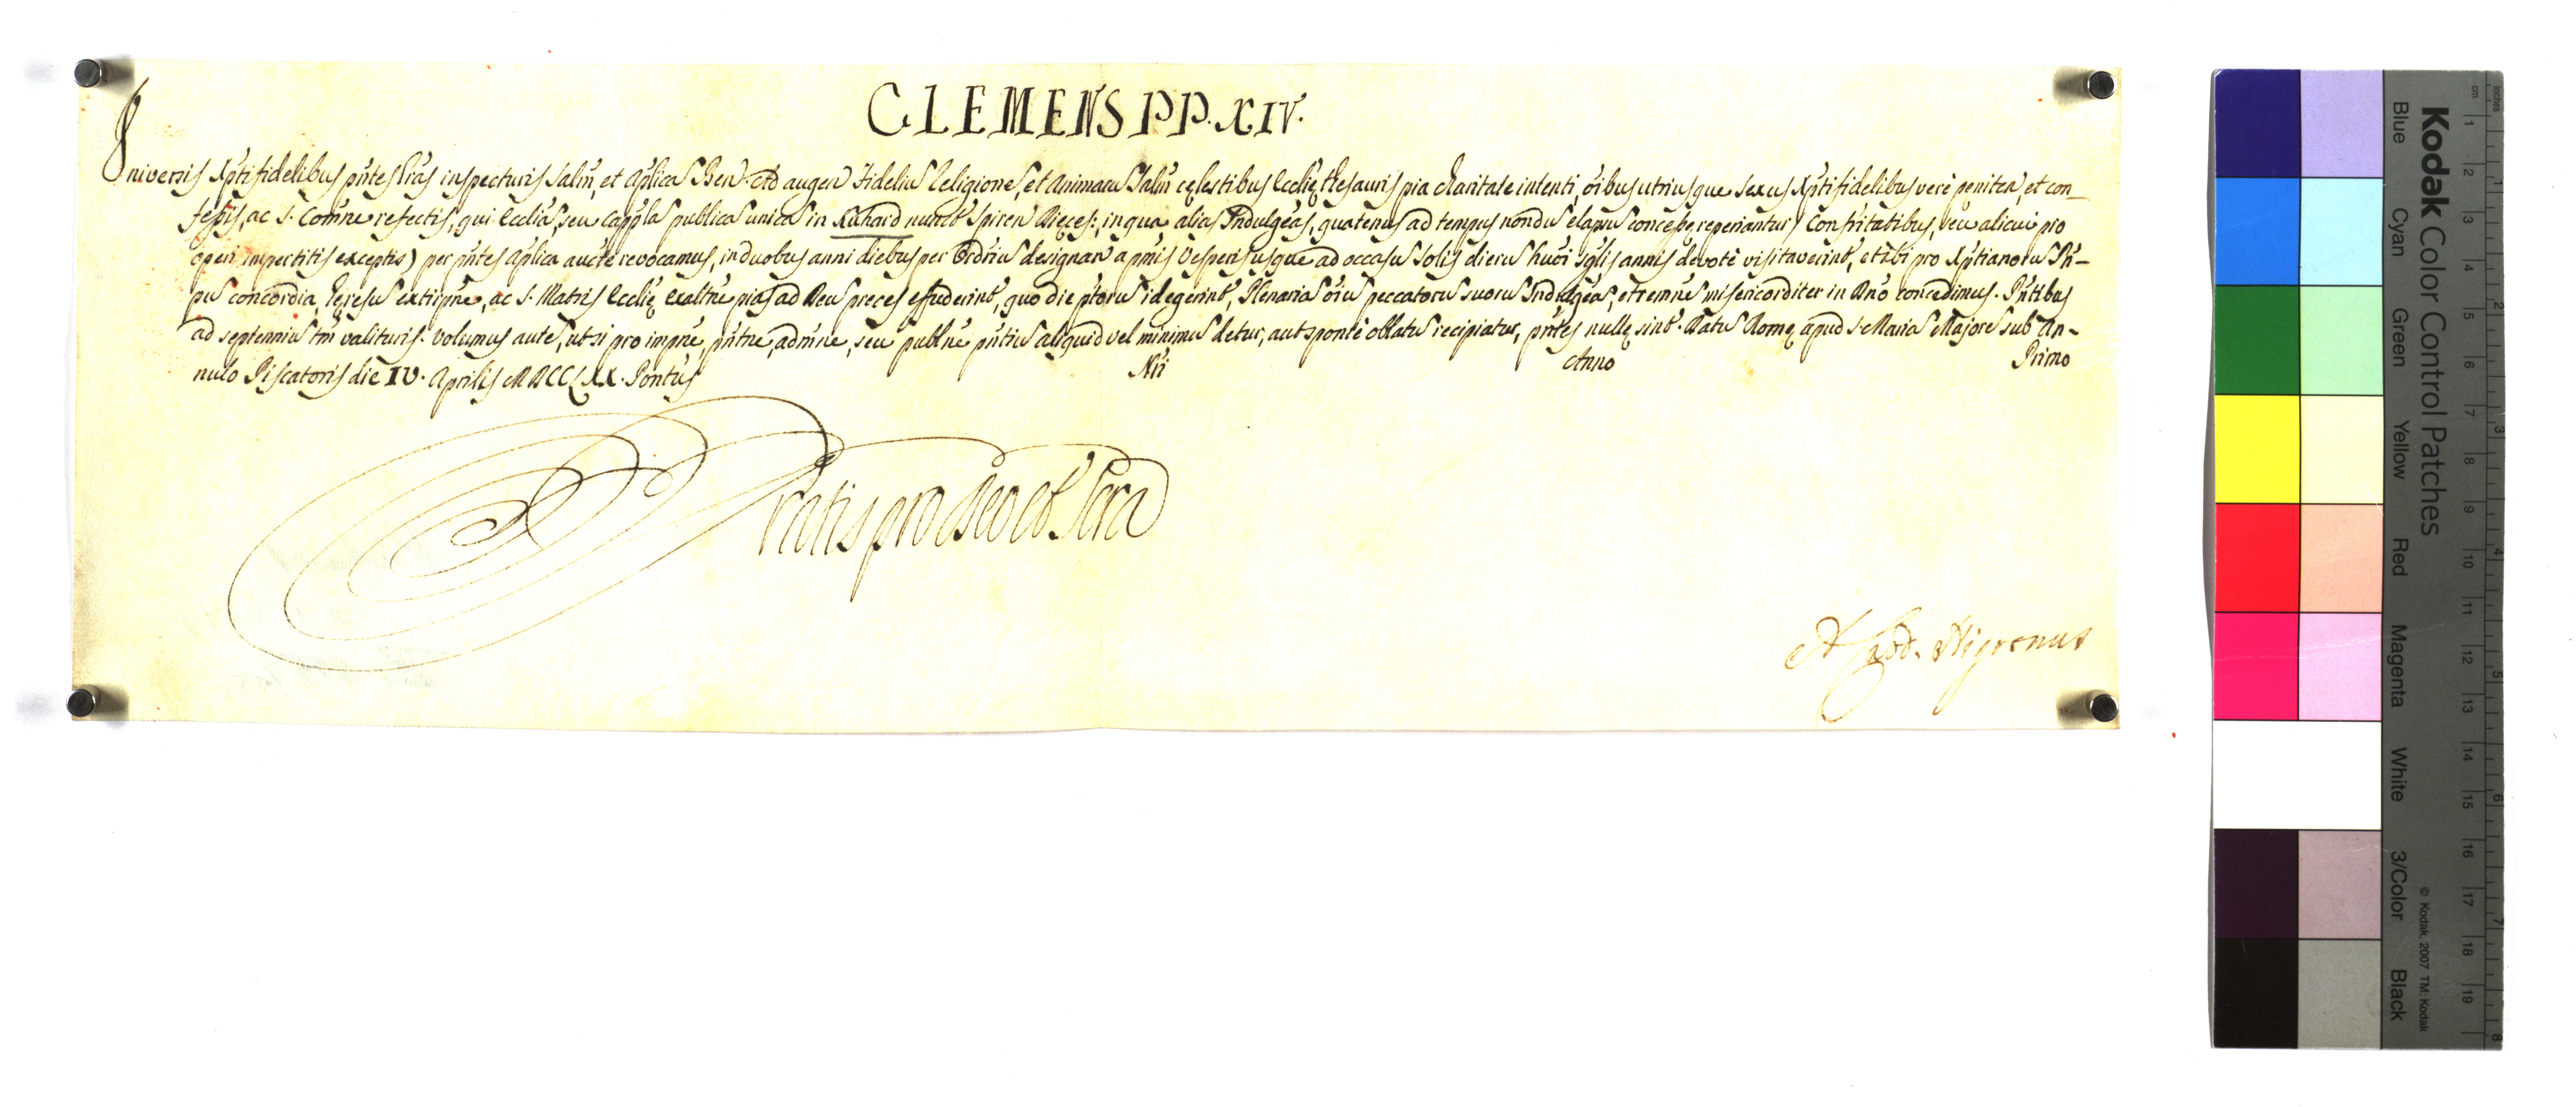 CLEMENS PP. XIV.
Universis Xpti fidelibus pñtes lr̃as inspecturis Salũ, et Aplica Ben. Ad augen fideliũ Religione, et Animarũ Salũ cęlestibus Ecclię thesauris pia charitate intenti, oĩbus utriusque sexus Xpti fidelibus verè peniten, et con-
fessis, ac S. Com̃ne refectis, qui Eccliã, seu Cappl̃a publicã unicã in Ruhard nuncũt Spiren Dięces:, in qua aliãs Indulgẽas, quatenus ad tempus nondũ elapsũ concessę reperiantur
operi impertitis exceptis) per pñtes Aplica aucte revocamus, in duobus anni diebus per Ordriũ designan à pmis Vesperis usque ad occasũ Solis dierũ huõi sglis annis devotè visitaverint, et ibi pro Xptianorũ Pñ-
pũ concordia, hęresũ extirpñe, ac S. Matris Ecclię exaltñe pias ad Deũ preces effuderint, quo die ptorũ id egerint, Plenariã oĩũ peccatorũ suorũ Indulgẽas, et remñe misericorditer in Dñõ concedimus. Pñtibus
ad septenniũ tm̃ valituris. Volumus autẽ, ut si pro impñe, pñtne, admñe, seu publñe pñtiũ aliquid vel minimũ detur, aut sponte oblatũ recipiatur, pñtes nullę sint. Datũ Romę apud S. Mariã Majorẽ sub An-
nulo Piscatoris die IV. Aprilis MDCCLXX. Pontũs Nri Anno Primo
Gratis pro Deo et Scra
A. Nigronus
Kodak Color Control Patches
Blue Cyan Green Yellow Red Magenta White 3/Color Black
© Kodak, 2007 TM: Kodak
cm 1 2 3 4 5 6 7 8 9 10 11 12 13 14 15 16 17 18 19
inches 1 2 3 4 5 6 7 8